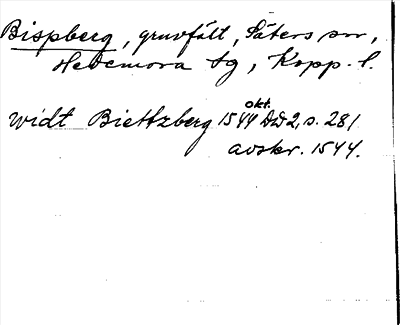 Bispberg, gruvfält, Säters sn,
Hedemora tg, Kopp. l.
okt.
widt Biettzberg 1544 DD2, s. 281
avskr. 1544.